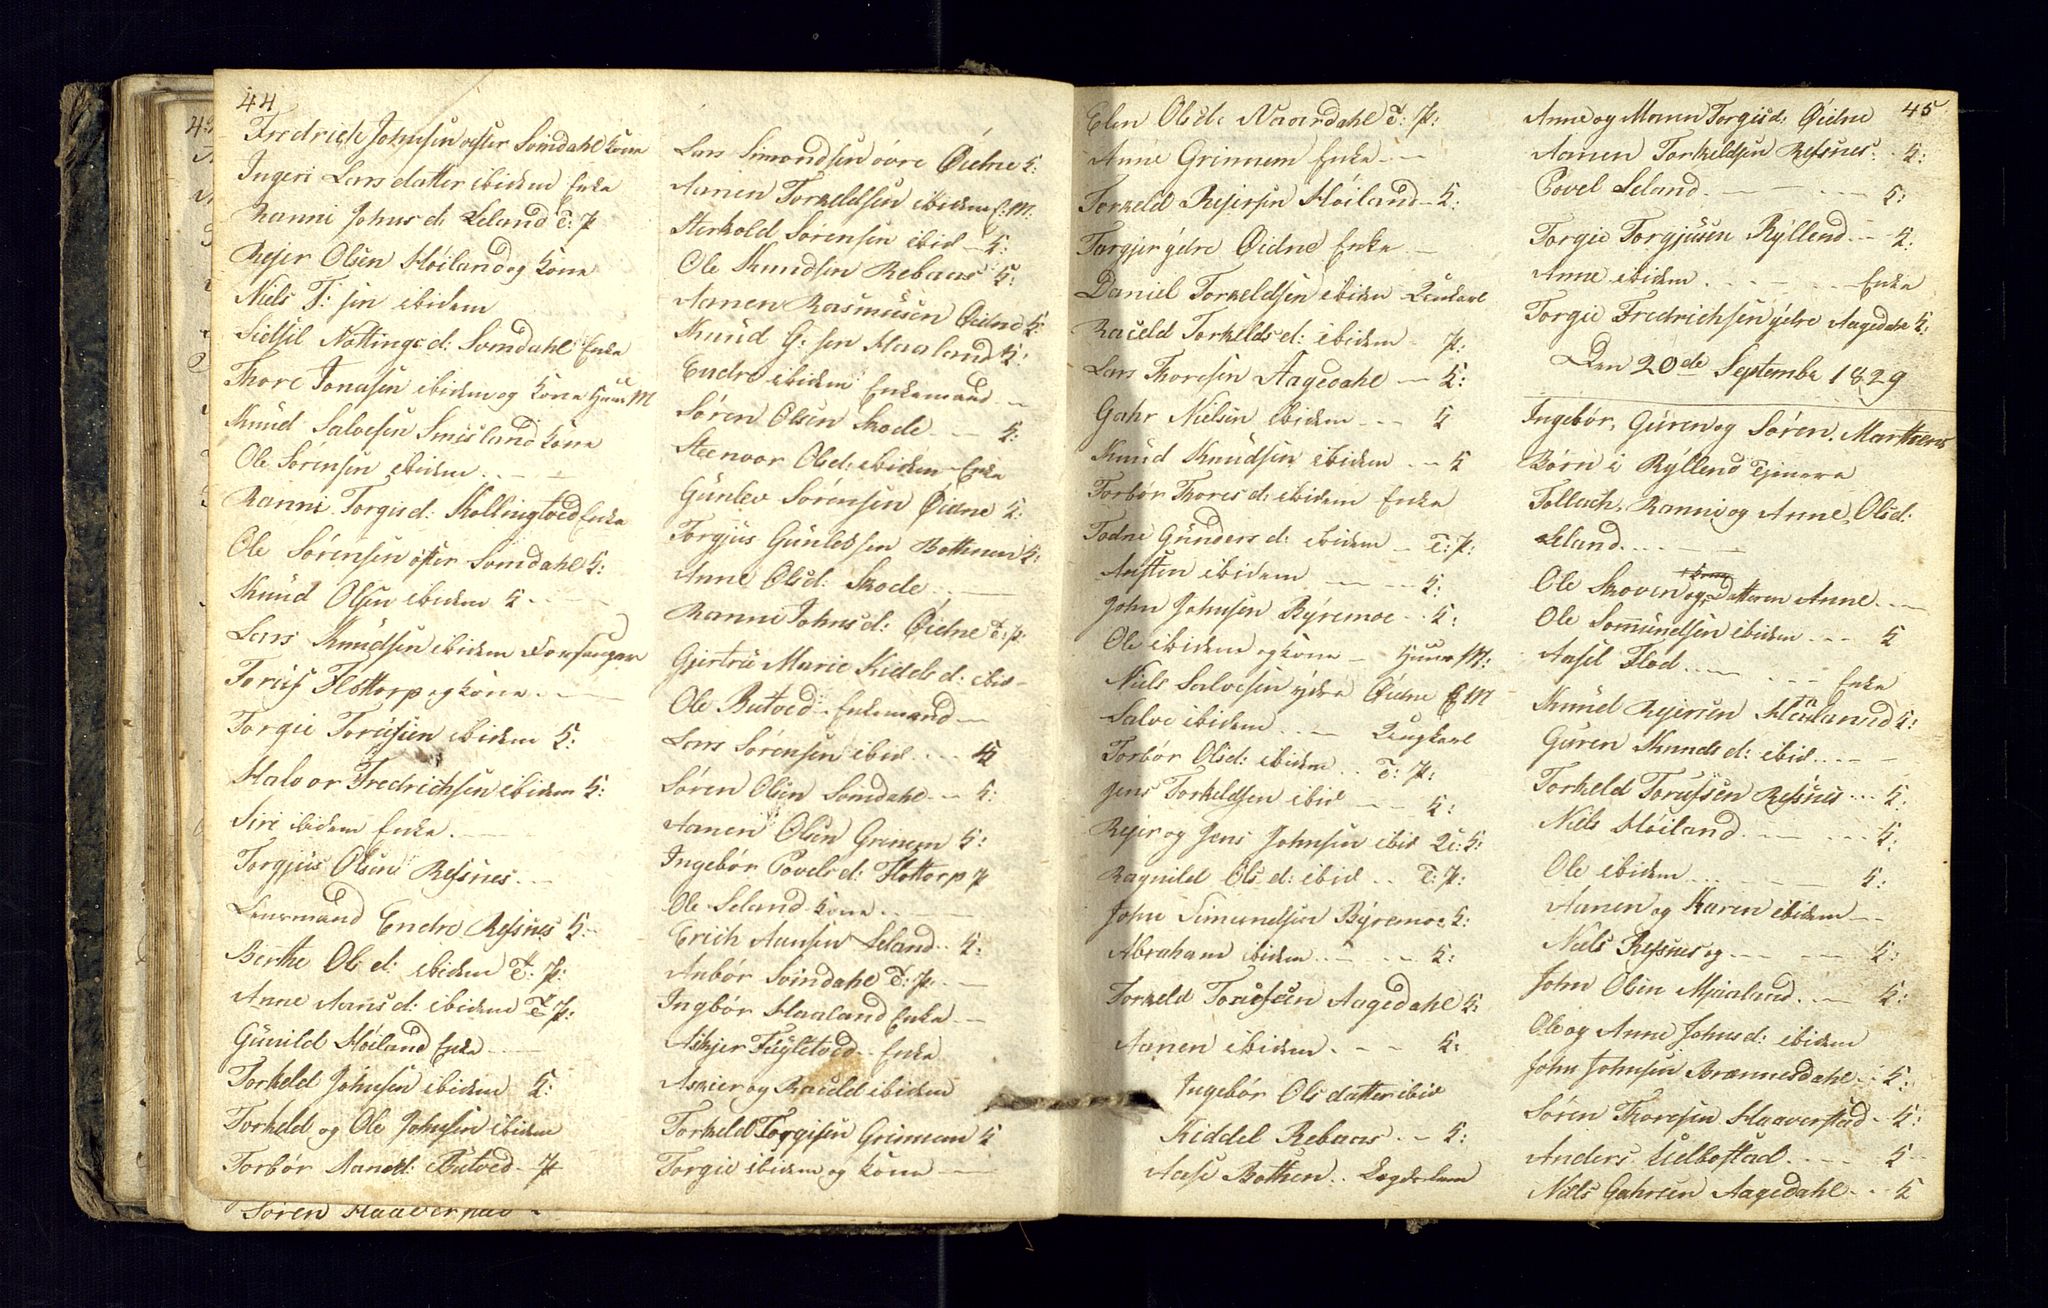 44
Fredrich Johnsen øster Somdahl kone
Ingeri Larsdatter ibidem Enke
Ranni Johnsd: Leland T: P
Rejer Olsen Höiland og kone
Niels T: sen ibidem
Sidsil Nottingsd: Somdahl Enke
Thore Jonasen ibidem og kone Huus M
Knud Salvesen Smisland kone
Ole Sørensen ibidem
Ranni Torgusd: Kollingtved Enke
Ole Sørensen øster Somdahl K:
Knud Olsen ibidem K
Lars Knudsen ibidem Forsanger
Torius Flottorp og kone
Torgie Toriusen ibidem K:
Halvor Fredrichsen ibidem K:
Siri ibidem Enke
Torgjus Olsen Refsnes
Lensmand Endre Refsnes K:
Berthe Olsd: ibidem T: P:
Anne Aansd: ibidem T P:
Gunild Höiland Enke
Torkeld Johnsen ibidem K:
Torkeld og Ole Johnsen ibidem
Torbør Aansd: Butved P
Søren Haaverstad
Lars Simondsen övre Øidne K:
Aanen Torkeldsen ibidem E: M:
Sterkold Sørensen ibid K:
Ole Knudsen Rebaas K:
Aanen Rasmusen Øidne K:
Knud G: sen Haaland K:
Endre ibidem Enkemand
Søren Olsen Skode K:
Steenvor Olsd: ibidem Enke
Gunlev Sørensen Øidne K:
Torgjus Gunlevsen Bothnen K:
Anne Olsd: Skode
Ranni Johnsd: Øidne T: P:
Gjertru Marie Kiddelsd: ibid
Ole Butved Enkemand
Lars Sørensen ibid K
Søren Olsen Somdahl K:
Aanen Olsen Grimem K:
Ingebør Povelsd: Flottorp P
Ole Leland kone
Erich Aansen Leland K:
Anbør Somdahl T: P:
Ingbør Haaland Enke
Askjer Fuglstved Enke
Askier og Raueld ibidem
Torkeld Torgisen Grimem K
Torgie ibidem og kone
Elen Olsd: Naardahl T: P:
Anne Grimem Enke
Torkeld Rejersen Höiland K:
Torgjer ydre Øidne Enke
Daniel Torkeldsen ibidem Ungkarl
Raueld Torkeldsd: ibidem P:
Lars Thoresen Aagedahl K:
Gahr Nielsen ibidem K
Knud Knudsen ibidem K
Torbør Thoresd: ibidem Enke
Todne Gundersd: ibidem T: P:
Austen ibidem K:
John Johnsen Byremoe K:
Ole ibidem og kone Huus M:
Niels Salvesen ydre Øidne E M
Salve ibidem Ungkarl
Torbør Olsd: ibidem T: P:
Jens Torkeldsen ibid K:
Rejer og Jens Johnsen ibid 2: K:
Ragnild Olsd: ibid T: P:
John Simundsen Byremoe K:
Abraham ibidem K:
Torkeld Toriusen Aagedahl K:
Aanen ibidem K:
Ingebør Olsdatter ibid
Kiddel Rebaas K:
Aase Bothen Lægdslem
45
Anne og Maren Torgiusd: Øidne
Aanen Torkeldsen Refsnes K:
Povel Leland K:
Torgie Torgjusen Ryllend K:
Anne ibidem Enke
Torgie Fredrichsen ydre Aagedahl K:
Den 20de September 1829
Ingebør, Guren og Søren, Marthens
Børn i Ryllend tjenere
Tollach, Ranni og Anne Olsd:
Leland
Ole Skoven og Datteren Anne
Ole Somundsen ibidem K
Aasil Flod Enke
Knud Rejersen Haaland K:
Guren Knudsd: ibid
Torkeld Torufsen Refsnes K:
Niels Höiland K:
Ole ibidem K:
Aanen og Karen ibidem
Niels Refsnes og K:
John Olsen Mjaaland K:
Ole og Anne Johnsd: ibidem
John Johnsen Brænnesdahl K:
Søren Thoresen Haaverstad K:
Anders Uelbostad K
Niels Gahrsen Aagedahl K